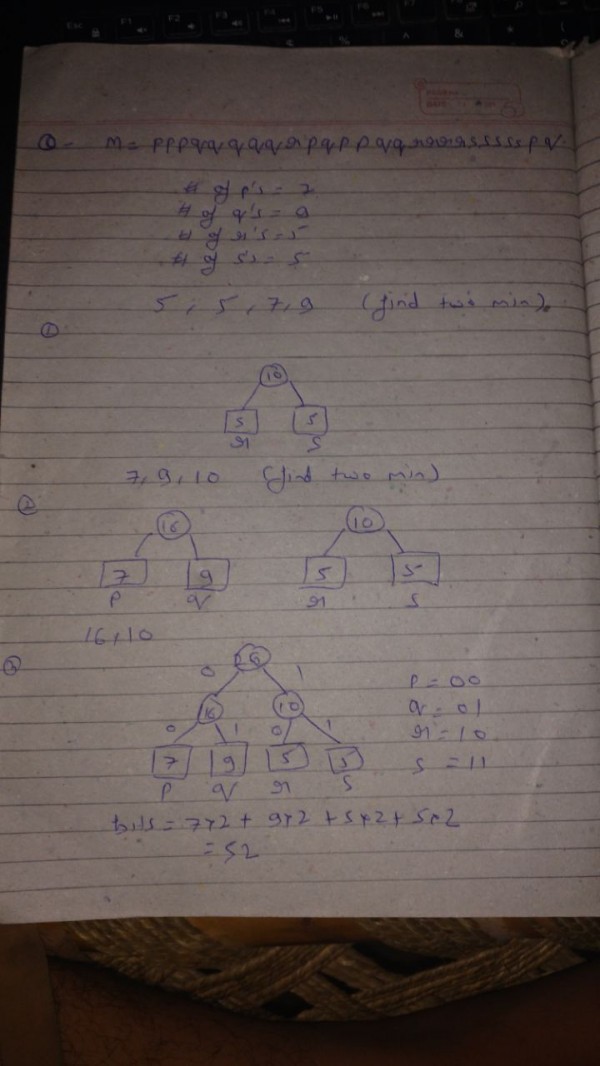 M = pppqqqqqrpqppqqrrrrsssssspq
# of p's = 7
# of q's = 9
# of r's = 5
# of s's = 5
5, 5, 7, 9 (find two min).
①
10
5 5
r s
7, 9, 10 (find two min)
②
16 10
7 9 5 5
p q r s
16, 10
③
26
0 1
16 10
0 1 0 1
7 9 5 5
p q r s
p = 00
q = 01
r = 10
s = 11
bits = 7x2 + 9x2 + 5x2 + 5x2
= 52